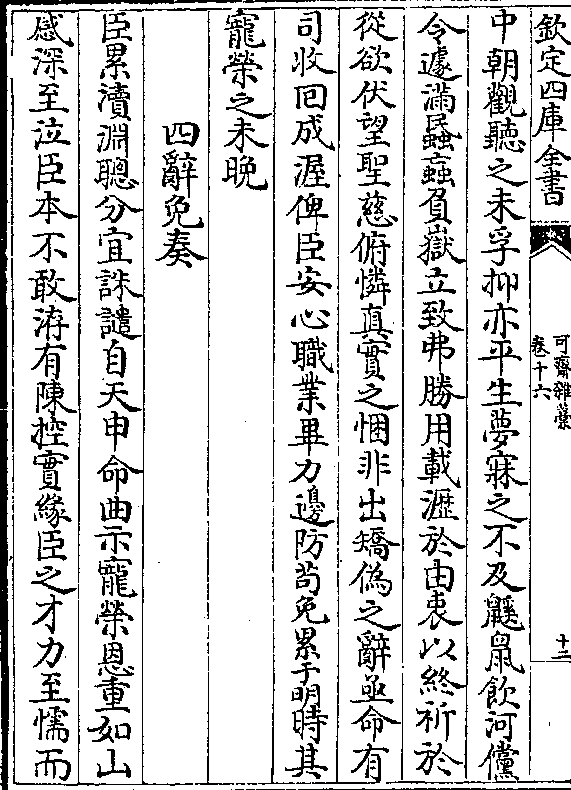 欽定四庫全書
可齋雜藁
卷十六
十三
中朝觀聽之未孚抑亦平生夢寐之不及鼹鼠飲河儻
令遽滿蟁蝱負嶽立致弗勝用載瀝於由衷以終祈於
從欲伏望聖慈俯憐真實之悃非出矯偽之辭亟命有
司收回成渥俾臣安心職業畢力邊防茍免累于明時其
寵榮之未晚
四辭免奏
臣累瀆淵聰分宜誅譴自天申命曲示寵榮恩重如山
感深至泣臣本不敢洊有陳控實緣臣之才力至懦而